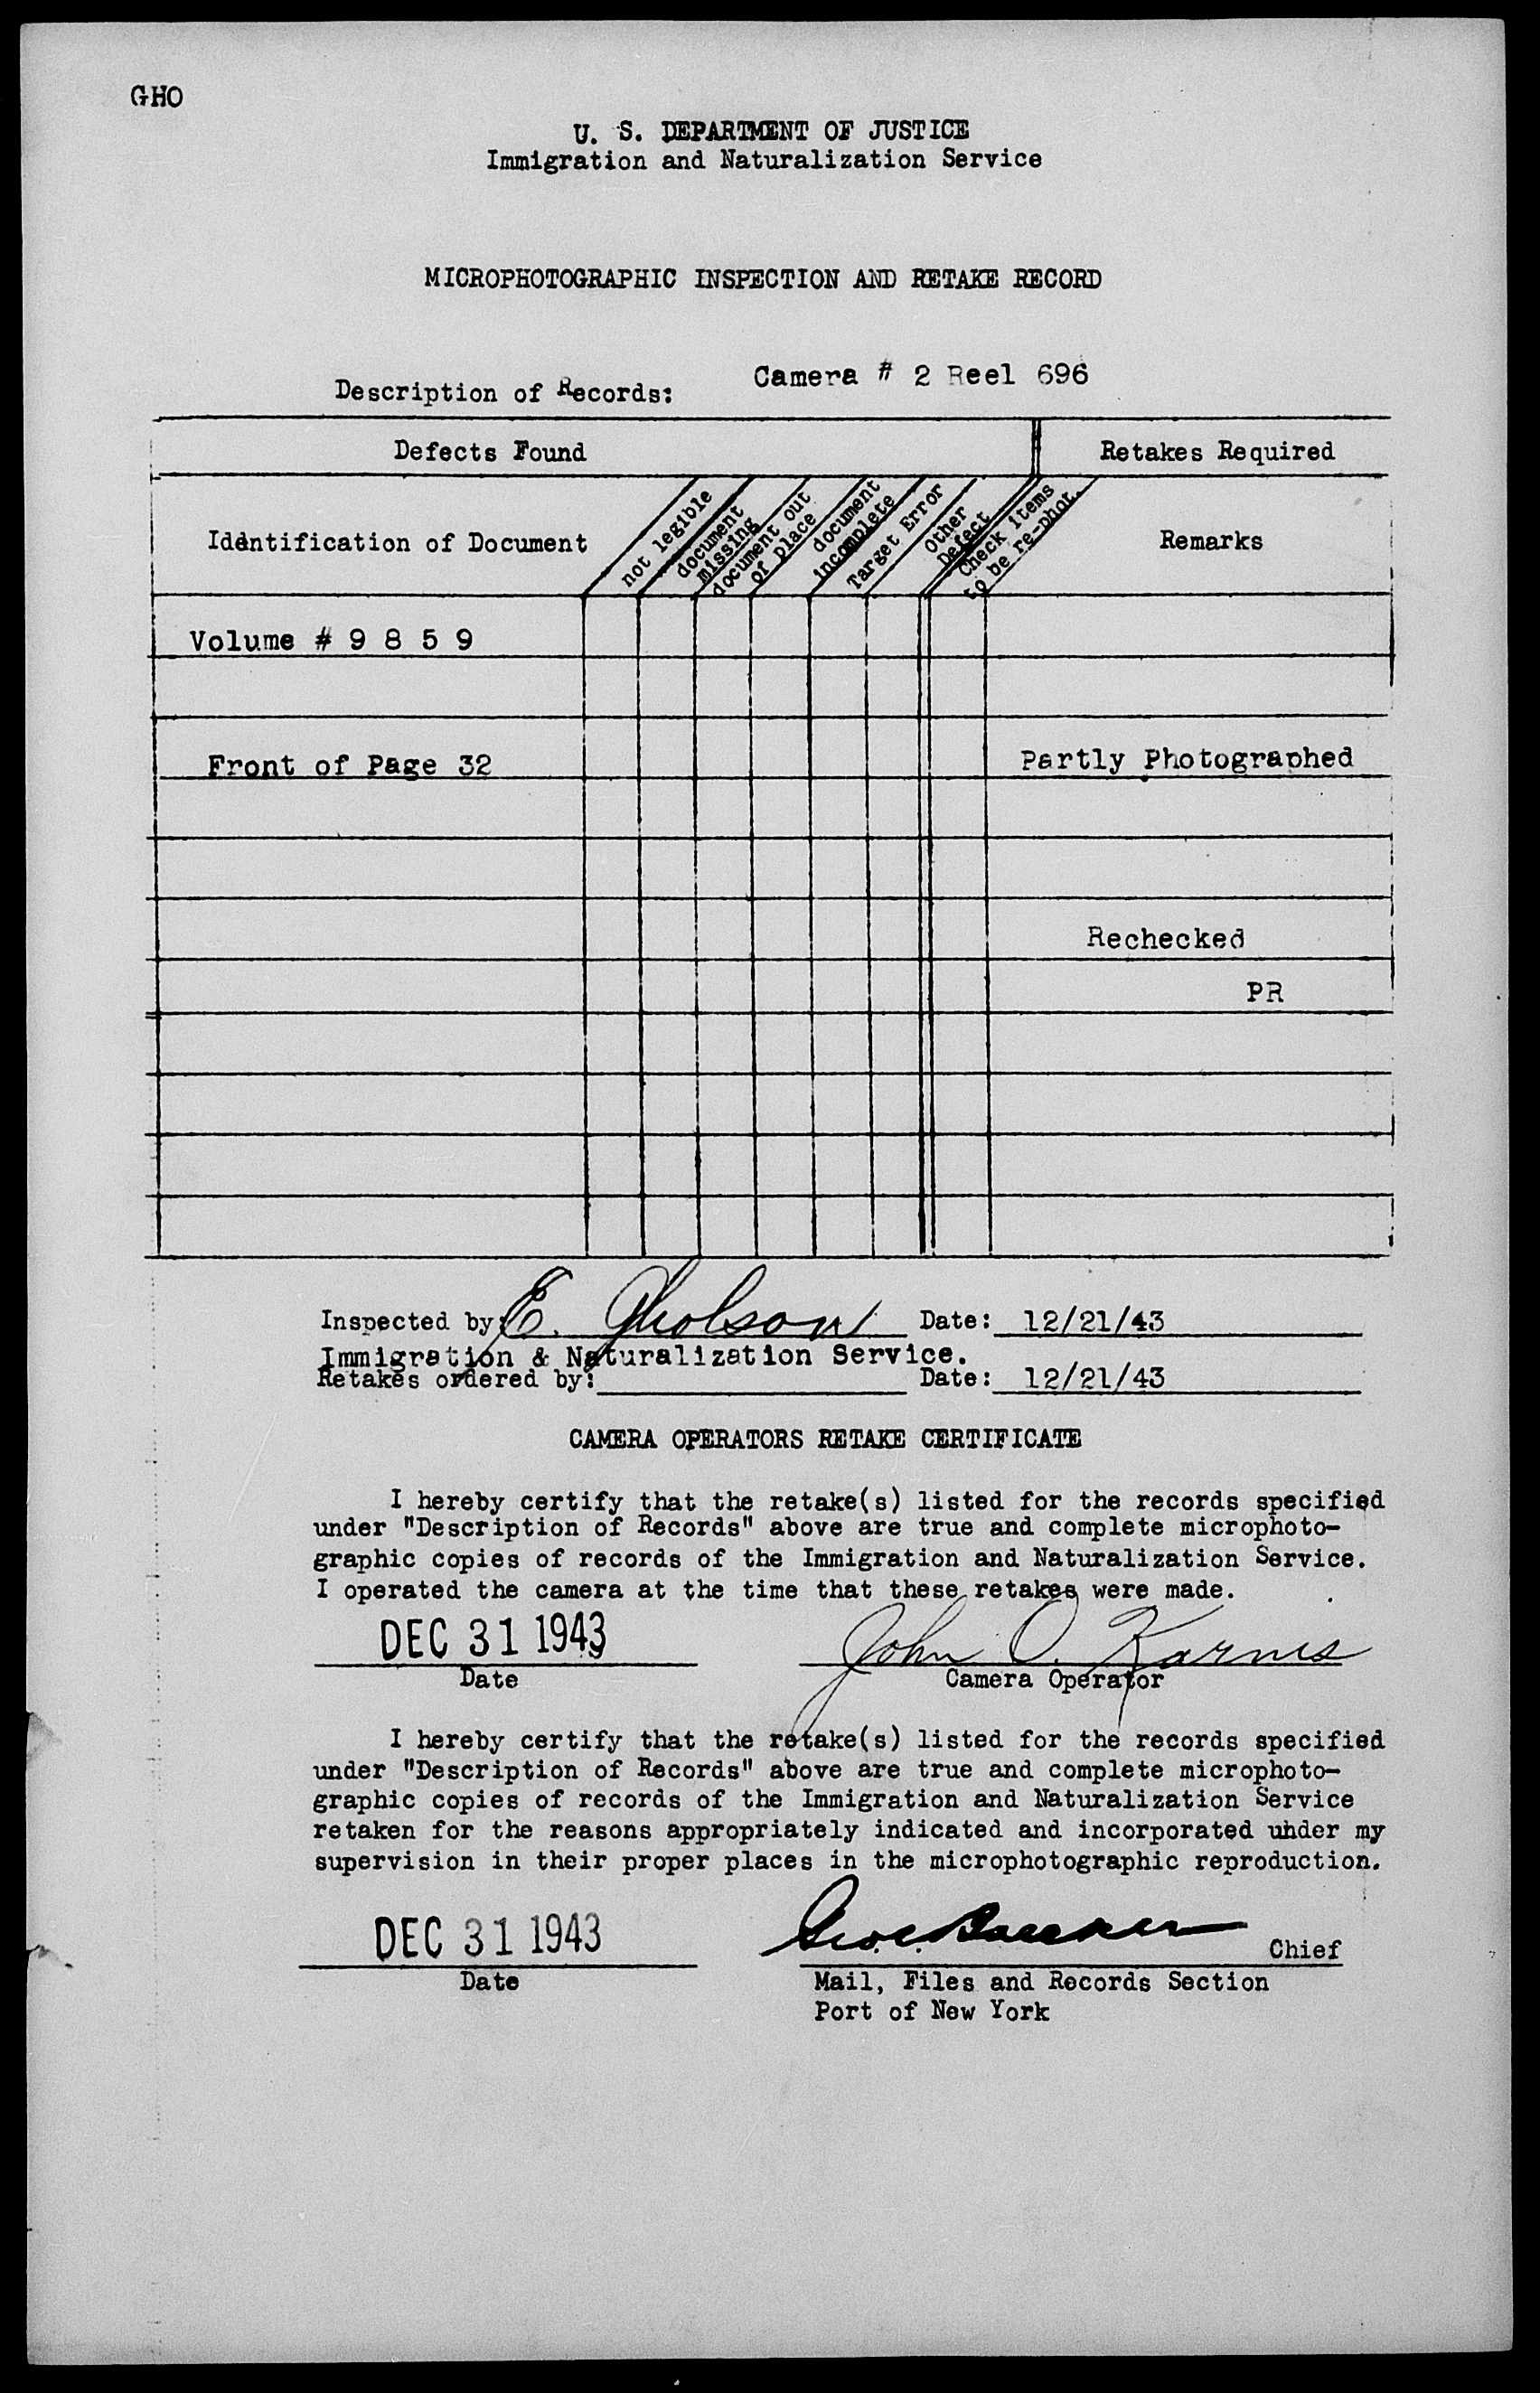 GHO
U. S. DEPARTMENT OF JUSTICE
Immigration and Naturalization Service
MICROPHOTOGRAPHIC INSPECTION AND RETAKE RECORD
Description of Records: Camera # 2 Reel 696
Defects Found Retakes Required
Identification of Document
not legible
document missing
document out of place
document incomplete
Target Error
Other Defect
Check items to be re-phot.
Remarks
Volume # 9 8 5 9
Front of Page 32 Partly Photographed
Rechecked
PR
Inspected by: E. Gholson Date: 12/21/43
Immigration & Naturalization Service.
Retakes ordered by: Date: 12/21/43
CAMERA OPERATORS RETAKE CERTIFICATE
I hereby certify that the retake(s) listed for the records specified
under "Description of Records" above are true and complete microphoto-
graphic copies of records of the Immigration and Naturalization Service.
I operated the camera at the time that these retakes were made.
DEC 31 1943 John O. Karnes
Date Camera Operator
I hereby certify that the retake(s) listed for the records specified
under "Description of Records" above are true and complete microphoto-
graphic copies of records of the Immigration and Naturalization Service
retaken for the reasons appropriately indicated and incorporated under my
supervision in their proper places in the microphotographic reproduction.
DEC 31 1943 Chief
Date Mail, Files and Records Section
Port of New York